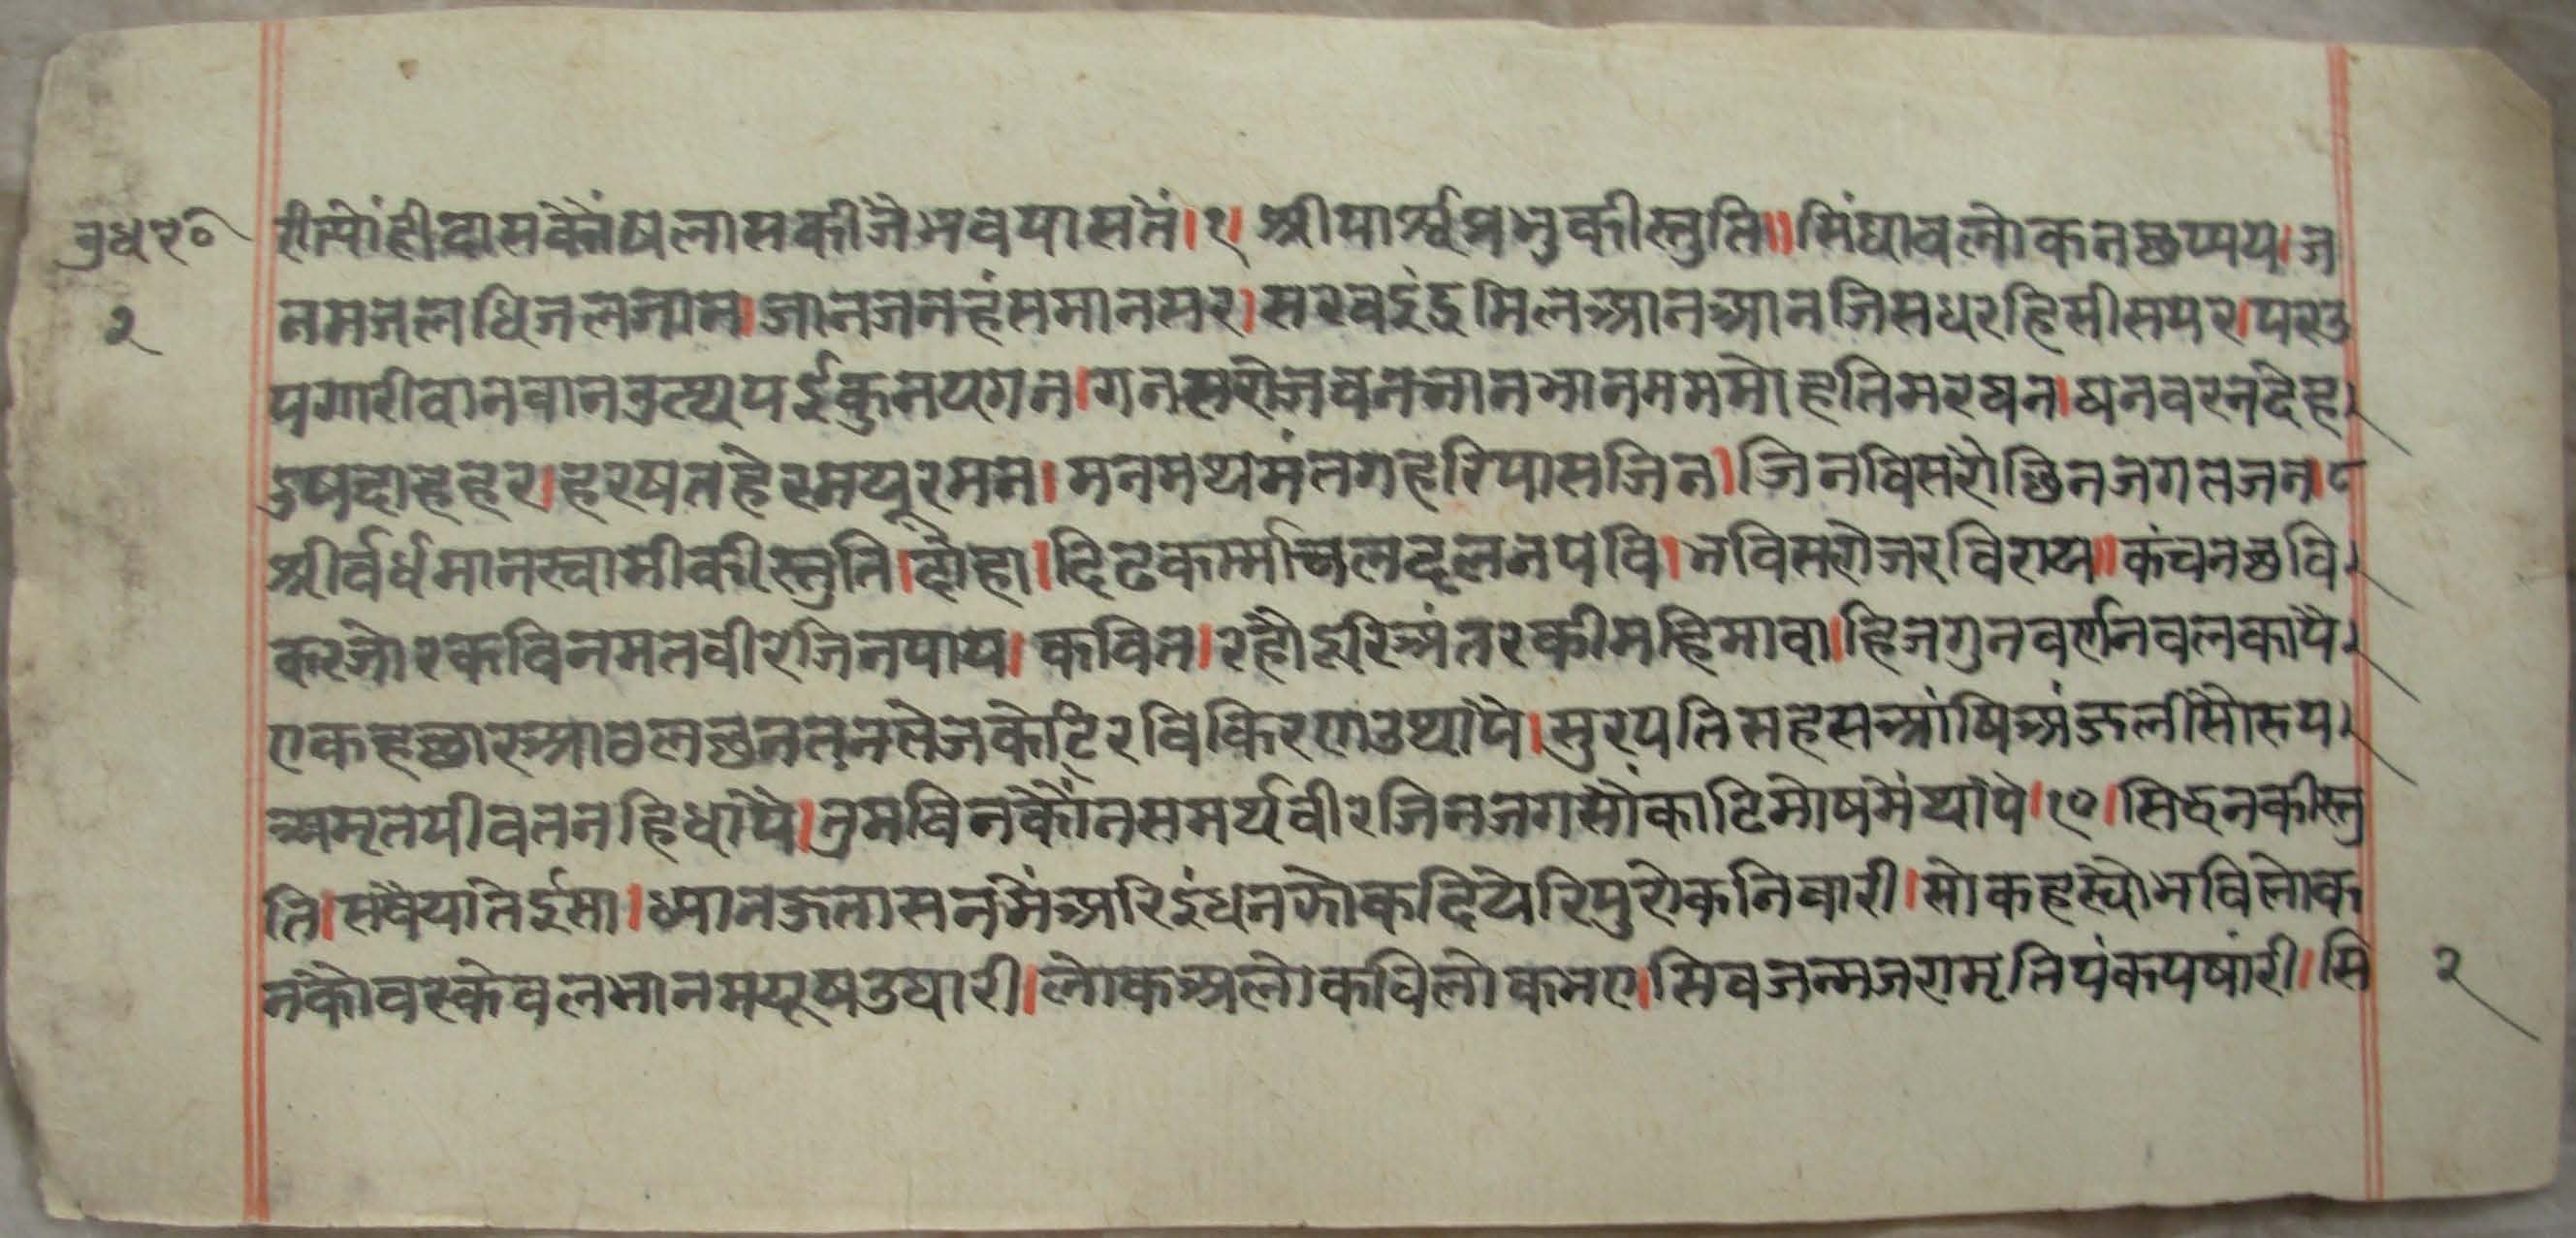 भुधर० रीत्योंहीदासकेतैंषलासकीजैभवपासतें।१। श्रीपार्श्वप्रभुकीस्तुति॥सिंघावलोकनछप्पय।ज
२ नमजलधिजलजान।जानजनहंसमानसर।सरवइंद्रमिलआनआनजिसधरहिसीसपर।परउ
पगारीवानवानउत्थपईकुनयगन।गनसरोजवनभानभानममममोहतिमरघन।घनवरनदेह
दुषदाहहर।हरषतहेरमयूरमन।मनमथमंतगहरिपासजिन।जिनविसरोछिनजगतजन।८
श्रीर्वर्धमानस्वामीकीस्तुति।दोहा।दिढकर्म्माचलदलनपवि।भविसरोजरविराय॥कंचनछवि
करजोरकविनमतवीरजिनपाय। कवित।रहौदूरिअंतरकीमहिमावा।हिजगुनवर्णनवलकापै
एकहछारआठलछनतनतेजकोटिरविकिरणउथापे।सुरपतिसहसआंषिअंजुलीसौरुप
अमृतपीवतनहिधापे।तुमविनकौंनसमर्थवीरजिनजगसौंकाटिमोषमेंथापे।१०।सिद्धनकीस्तु
ति।सवैयातेईसा।ध्यानऊतासनमेंअरिइंधनझोकदियोरिपुरोकनिवारी।सोकहर्योभविलोक
नकोवरकेवलभानमयूषउघारी।लोकअलोकविलोकनए।सिवजन्मजरामृतिपंकपषारी।सि २